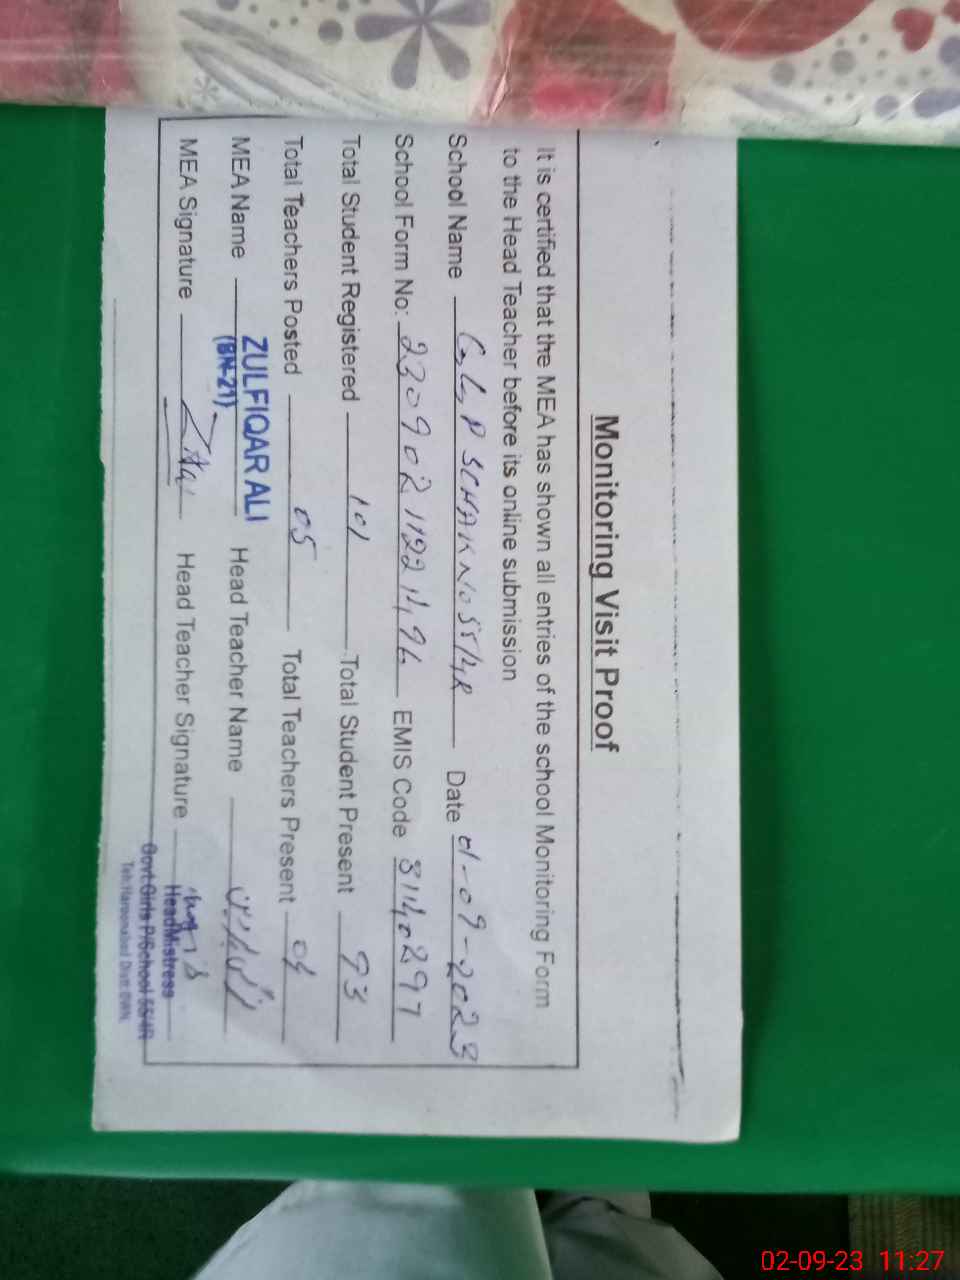 Monitoring Visit Proof
It is certified that the MEA has shown all entries of the school Monitoring Form
to the Head Teacher before its online submission
School Name SCHAK NO 55/4R Date 01-09-2023
School Form No: EMIS Code 31140297
Total Student Registered 101 Total Student Present 93
Total Teachers Posted 05 Total Teachers Present 04
MEA Name ZULFIQAR ALI Head Teacher Name
(BN-21)
MEA Signature Head Teacher Signature
HeadMistress
Govt: Girls P/School 55/4R
Teh: Haroonabad Distt: BWN.
02-09-23 11:27